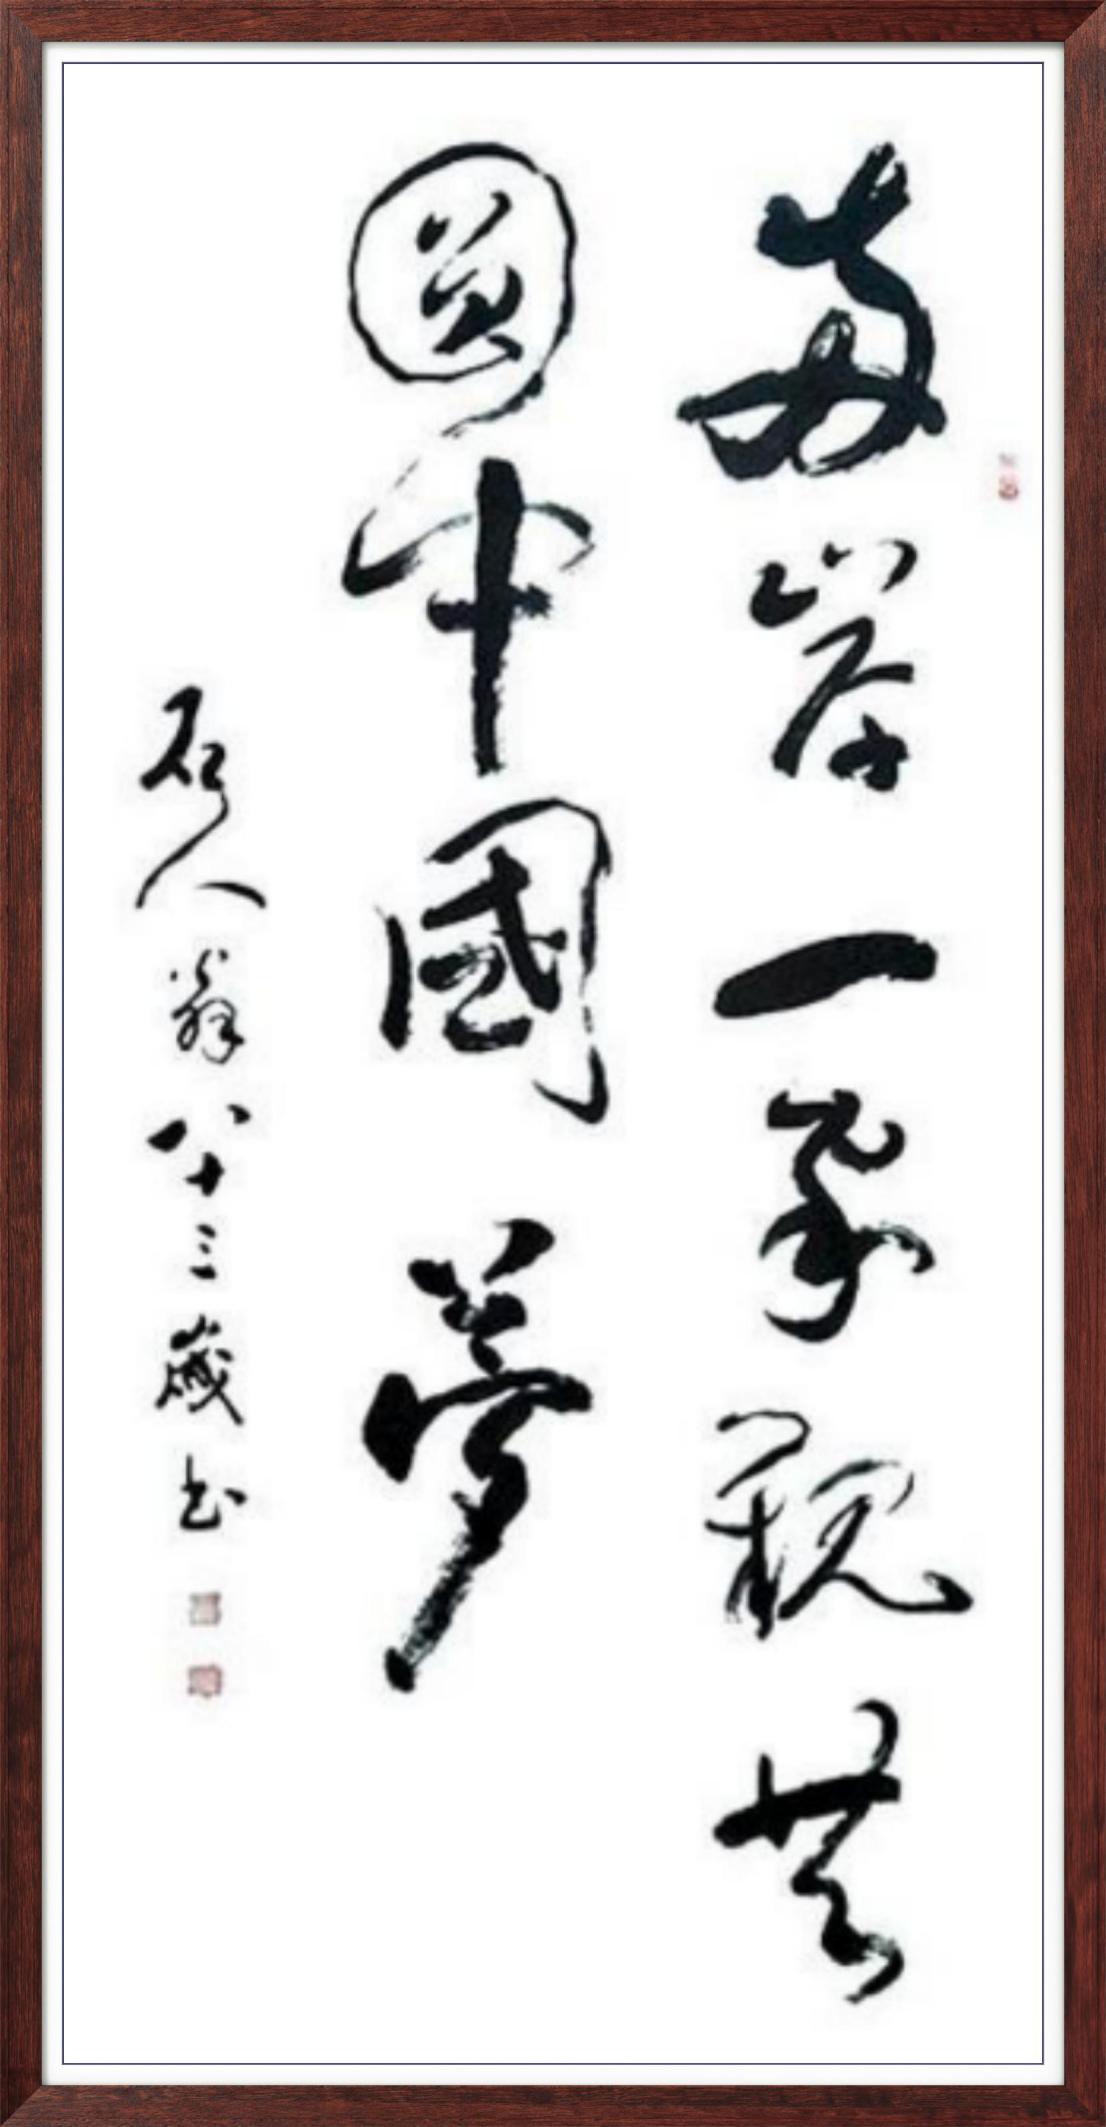 兩岸一家親共
圓中國夢
石人翁八十三歲书